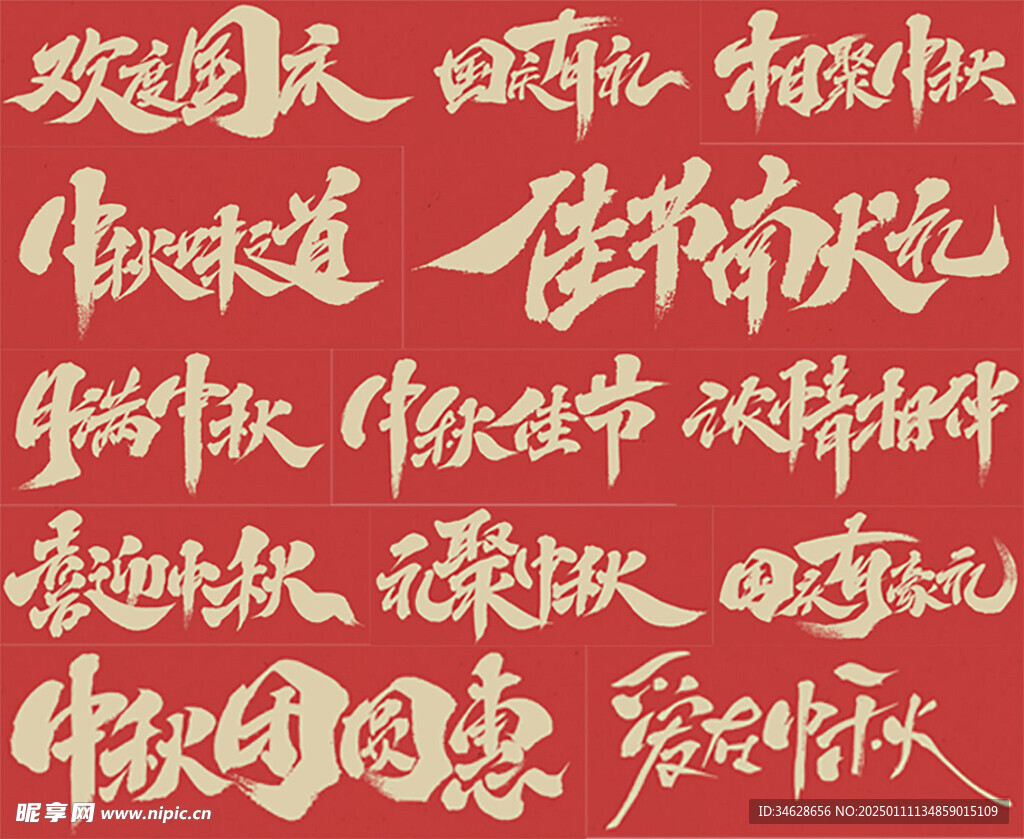 欢度国庆
国庆有礼
相聚中秋
中秋味之道
佳节南秋礼
月满中秋
中秋佳节
浓情相伴
喜迎中秋
礼聚中秋
国庆有豪礼
中秋团圆惠
爱在中秋
昵享网 www.nipic.cn
ID:34628656 NO:20250111134859015109